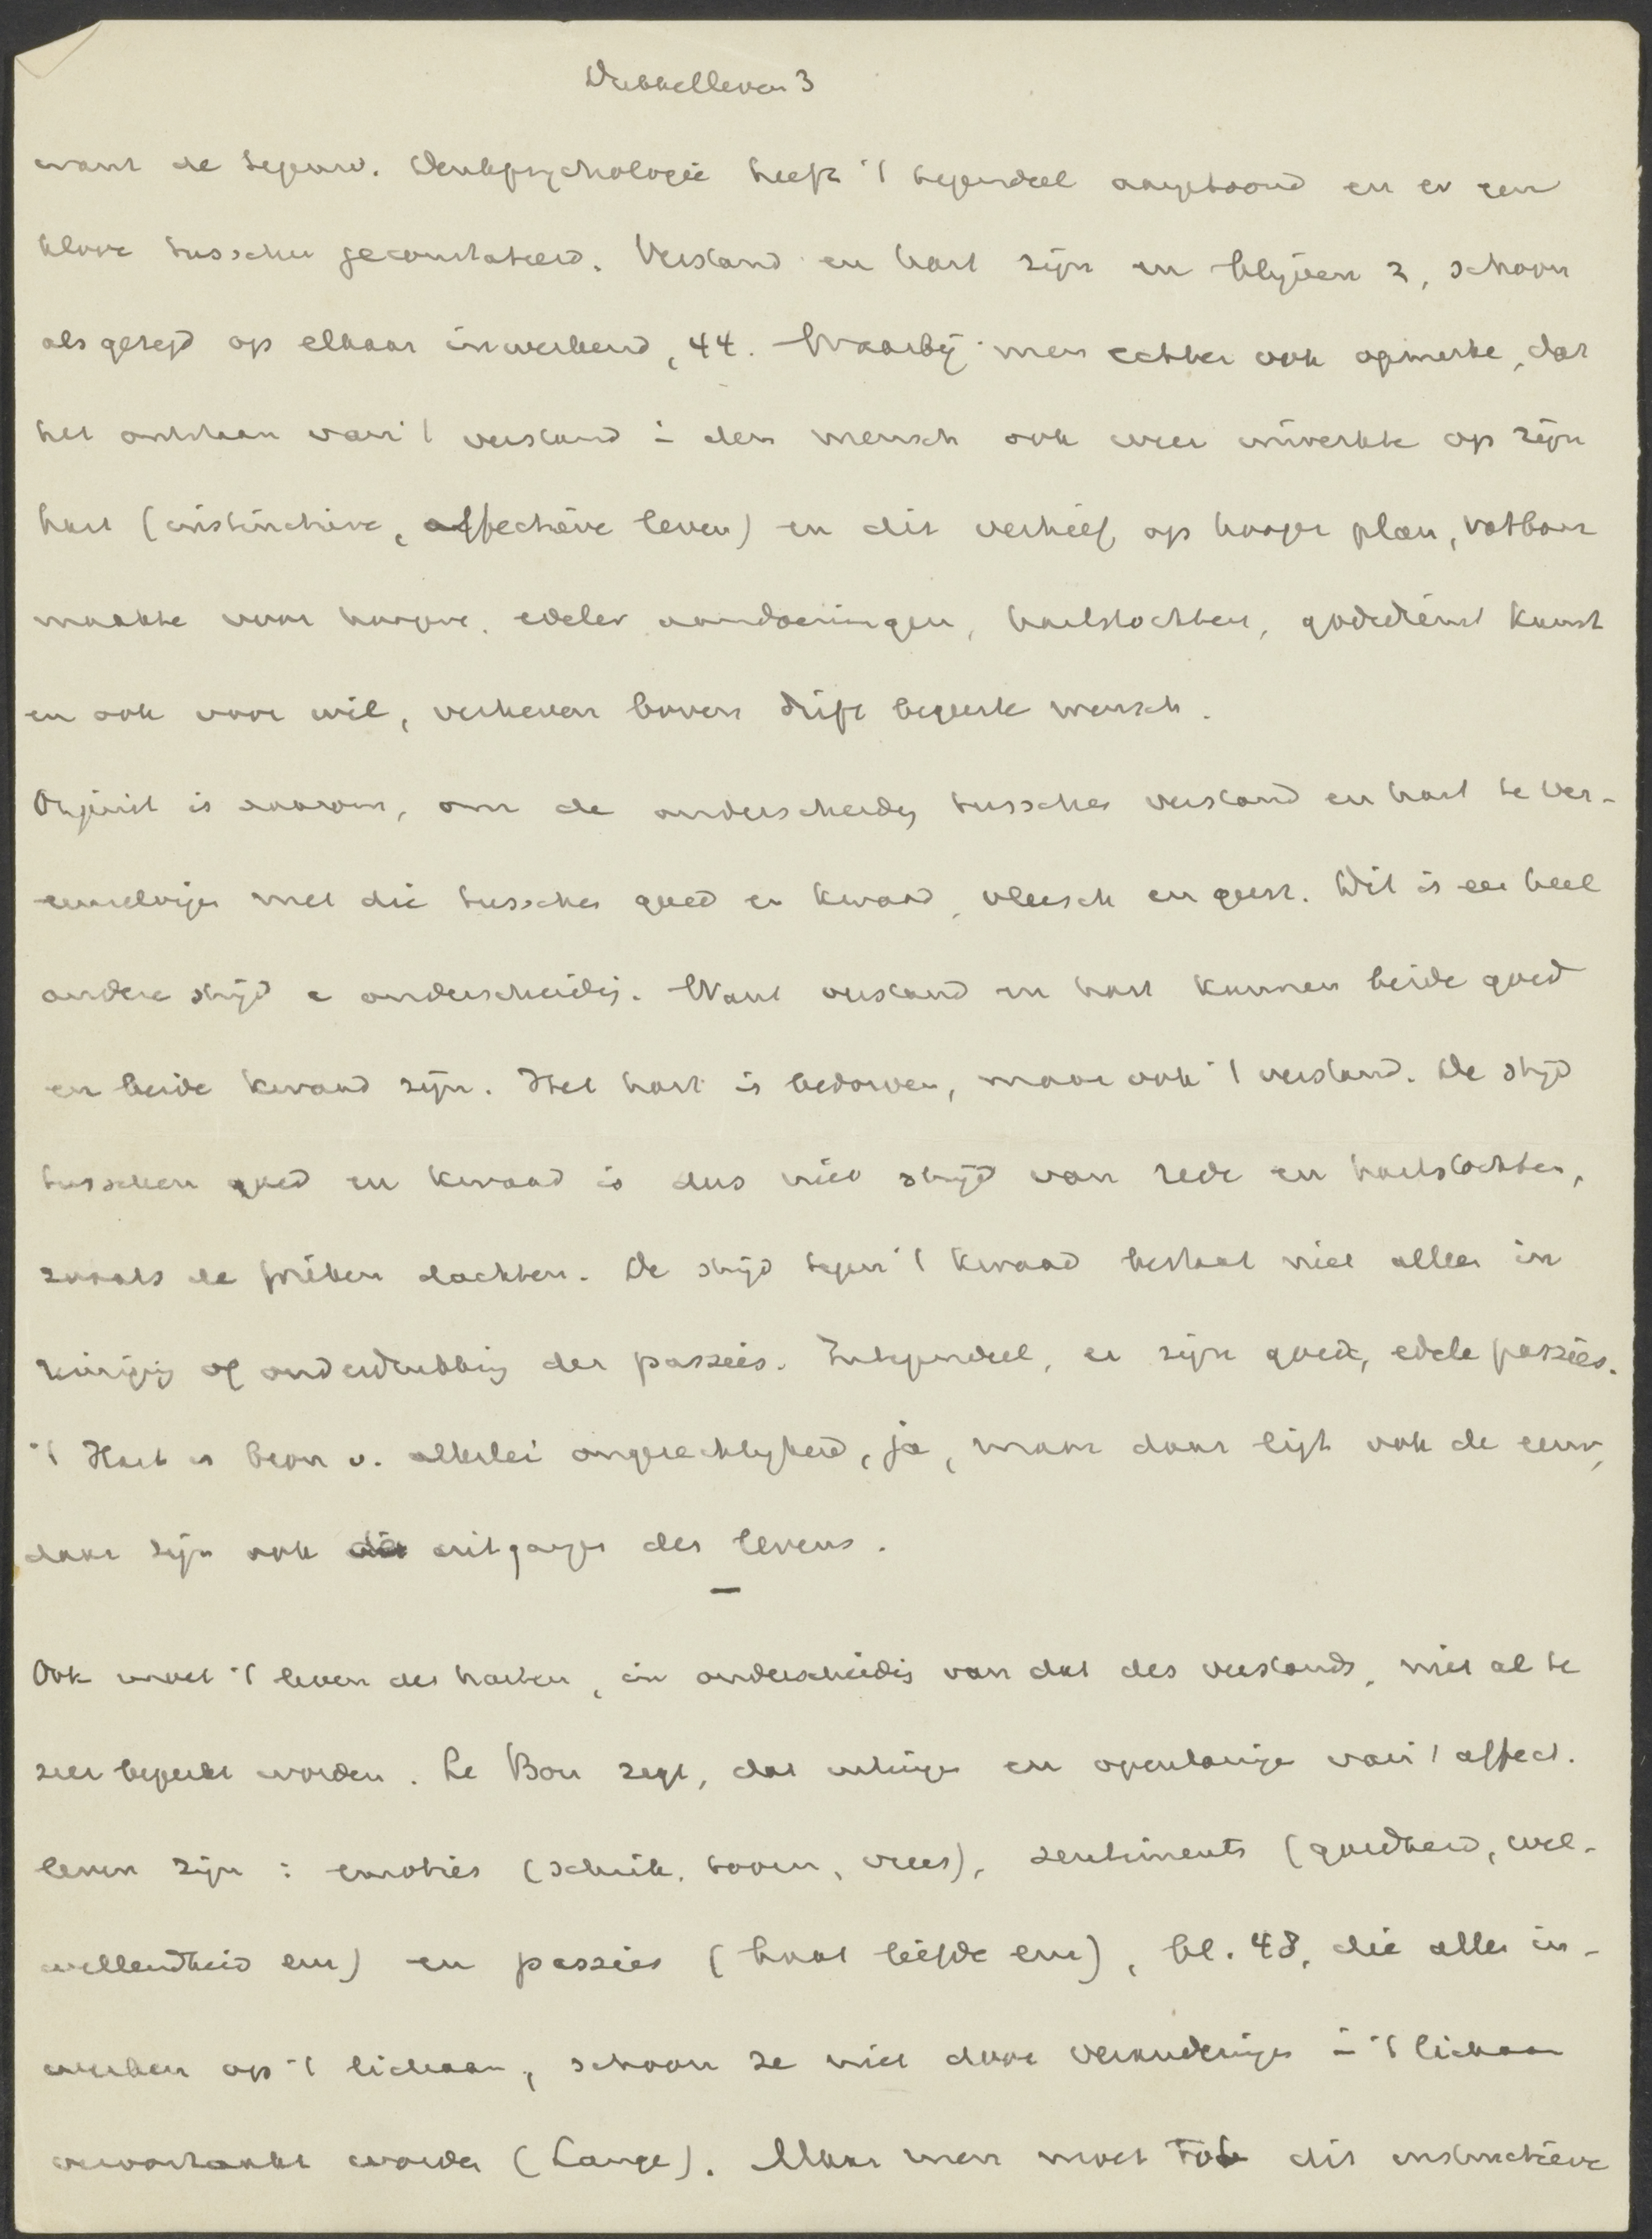 Dubbelleven 3
want de tegenw. Denkpsychologie heeft 't tegendeel aangetoond en er een
klove tusschen geconstateerd. Verstand en hart zijn en blijven 2, schoon
als gezegd op elkaar inwerkend, 44. Waarbij men echter ook opmerke, dat
het ontstaan van 't verstand i den mensch ook weer inwerkte op zijn
hart (instinctieve, affectieve leven) en dit verhief op hooger plan, vatbaar
maakte voor hoogere, edeler aandoeningen, hartstochten, godsdienst kunst
en ook voor wil, verheven boven drift begeerte wensch.
Onjuist is daarom, om de onderscheidg tusschen verstand en hart te ver-
eenzelvigen met die tusschen goed en kwaad, vleesch en geest. Dit is een heel
andere strijd e onderscheidig. Want verstand en hart kunnen beide goed
en beide kwaad zijn. Het hart is bedorven, maar ook 't verstand. De strijd
tusschen goed en kwaad is dus niet strijd van rede en hartstochten,
zooals de Grieken dachten. De strijd tegen 't kwaad bestaat niet alleen in
reinigig of onderdrukkig der passies. Integendeel, er zijn goede, edele passies.
't Hart is bron v. allerlei ongerechtigheid, ja, maar daar ligt ook de eeuw,
daar zijn ook de uitgangen des levens.
—
Ook moet 't leven des harten, in onderscheidig van dat des verstands, niet al te
zeer beperkt worden. Le Bon zegt, dat uitinge en openbaringe van 't affect.
leven zijn : emoties (schrik, toorn, vrees), sentiments (goedheid, wel-
willendheid enz) en passies (haat liefde enz), bl. 48, die allen in-
werken op 't lichaam, schoon ze niet door veranderingen i 't lichaam
veroorzaakt worden (Lange). Maar men moet tot dit instinctieve